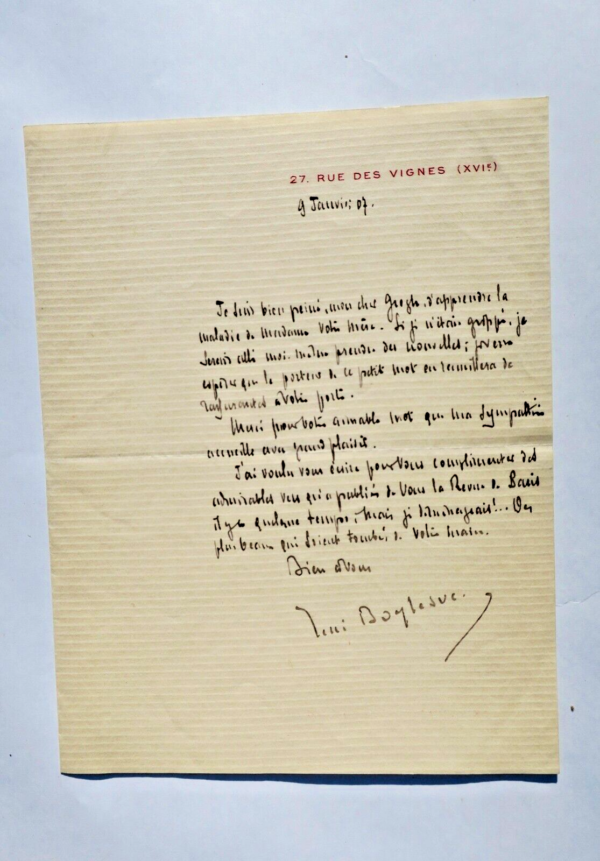 27. RUE DES VIGNES (XVIe)
9 Janvier 07.
Je suis bien peiné, mon cher Gregh, d'apprendre la
maladie de Madame votre mère. Si je n'étais grippé, je
serais allé moi-même prendre des nouvelles; j'ose
espérer que le porteur de ce petit mot en recueillera de
rassurantes à votre porte.
Merci pour votre aimable mot que ma sympathie
accueille avec grand plaisir.
J'ai voulu vous écrire pour vous complimenter des
admirables vers qu'a publiés de vous la Revue de Paris
il y a quelque temps; mais je déménageais!.. Des
plus beaux qui soient tombés de votre main.
Bien à vous
René Boylesve.